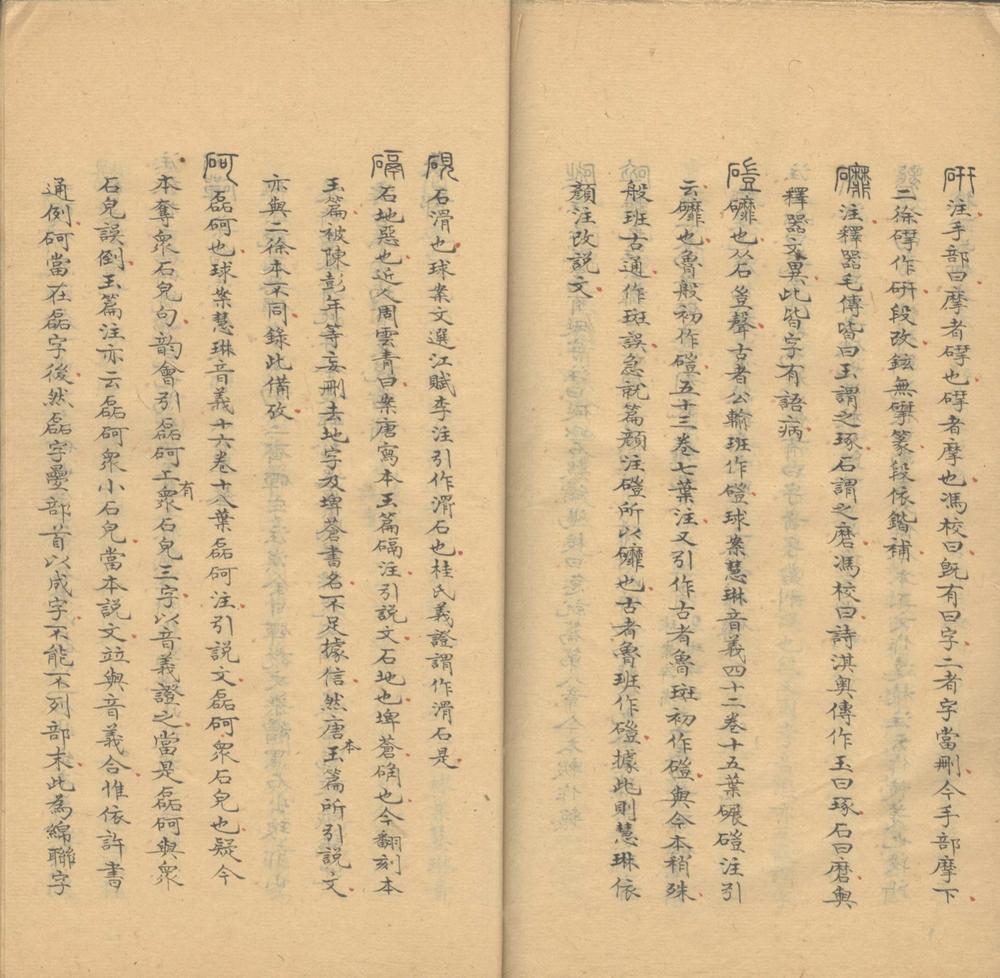 研注手部曰摩者硏也硏者摩也馮校曰旣有曰字二者字當刪今手部摩下
二徐硏作研段改鉉無硏篆段依鍇補
䃺注釋器毛傳皆曰玉謂之琢石謂之磨馮校曰詩淇奧傳作玉曰琢石曰磨與
釋器文異此皆字有語病
磑䃺也从石豈聲古者公輸班作磑球案慧琳音義四十二卷十五葉碾磑注引
云䃺也魯般初作磑五十三卷七葉注又引作古者魯班初作磑與今本稍殊
般班古通作斑誤急就篇顏注磑所以䃺也古者魯班作磑據此則慧琳依
顏注改說文
硯石滑也球案文選江賦李注引作滑石也桂氏義證謂作滑石是
䃒石地惡也近人周雲青曰案唐寫本玉篇䃒注引說文石地也埤蒼确也今翻刻本
玉篇被陳彭年等妄刪去地字及埤蒼書名不足據信然唐本玉篇所引說文
亦與二徐本不同錄此備攷
砢磊砢也球案慧琳音義十六卷十八葉磊砢注引說文磊砢衆石皃也疑今
本奪衆石皃句韵會引磊砢上有衆石皃三字以音義證之當是磊砢與衆
石皃誤倒玉篇注亦云磊砢衆小石皃當本說文竝與音義合惟依許書
通例砢當在磊字後然磊字疊部首以成字不能不列部末此為綿聯字